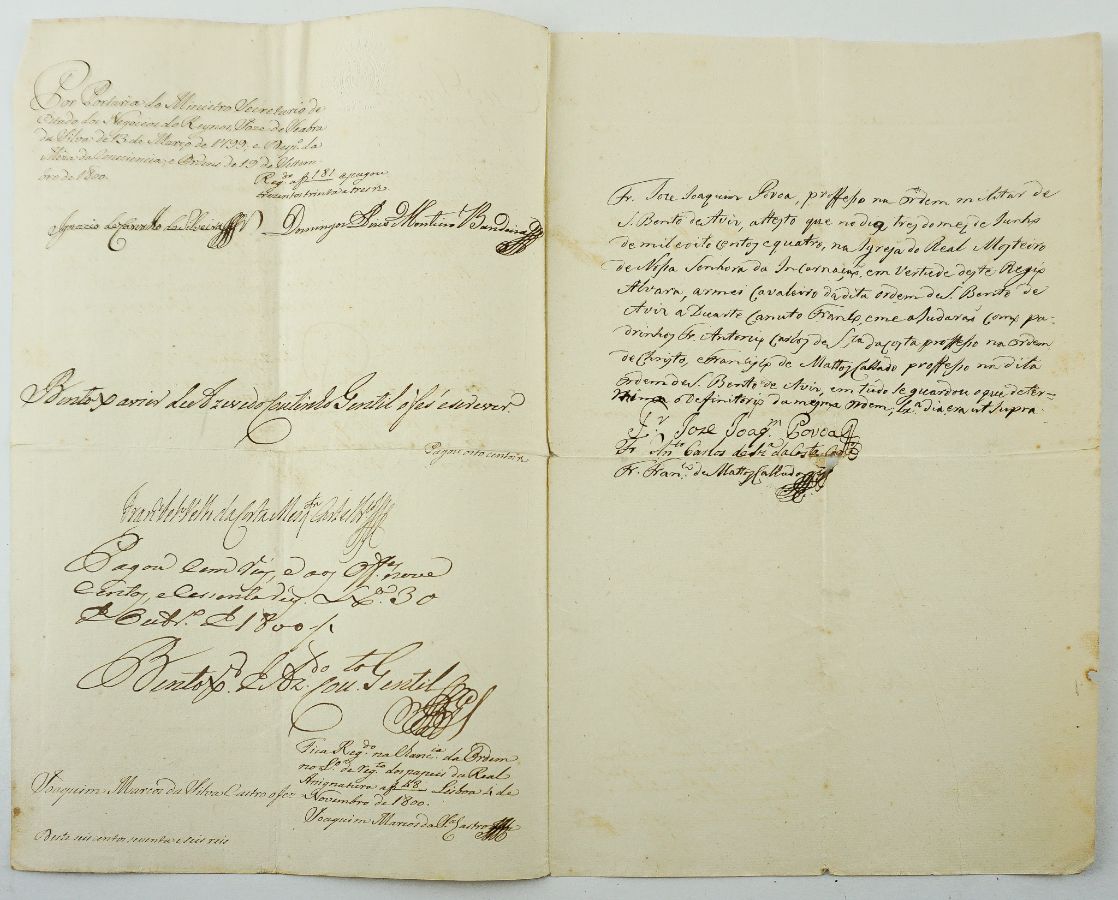 Por Portaria do Ministro Secretario de
Estado dos Negocios do Reyno, Joze de Seabra
da Silva de 13 de Março de 1799; e Resp.ta da
Meza da Consciencia, e Ordens de 19 de Setem-
bro de 1800.
Reg.do a f 181 e pagou
trezentos trinta e tres rs
Ignacio de Carvalho da Silveira
Domingos Pires Monteiro Bandeira
Bento Xavier de Azevedo Coutinho Gentil o fes escrever
Pagou oito centos rs
da Costa
Pagou Cem reis, e aos Off.es nove
Centos, e Cessenta reis. Lx.a 30
de Outbr.o de 1800
Bento X.er de Az.do Cou.to Gentil
Fica Reg.do na Chanc.a da Ordem
no L.o de Reg.to dos papeis da Real
Asignatura a f 188 Lisboa 4 de
Novembro de 1800.
Joaquim Marcos da S.a Castro
Joaquim Marcos da Silva Castro o fez
Desta seis centos noventa e seis reis
Fr. Joze Joaquim Povoa, professo na ordem militar de
S. Bento de Aviz, attesto que no dia tres do mes de Junho
de mil e oito centos e quatro, na Igreja do Real Mosteiro
de Nossa Senhora da Incarnação, em Vertude deste Regio
Alvara, armei Cavaleiro da dita ordem de S. Bento de
Aviz a Duarte Canuto Franco, e me aJudarão Como pa-
drinhos Fr. Antonio Carlos de S.ta da Costa professo na ordem
de Christo, e Francisco de Mattos Callado professo na dita
ordem de S. Bento de Aviz, em tudo se guardou o que deter-
mina o Definitorio da mesma ordem, Lx.a dia era ut Supra.
Fr. Joze Joaq.m Povoa
Fr. Ant.o Carlos de S.ta da Costa
Fr. Fran.co de Mattos Callado